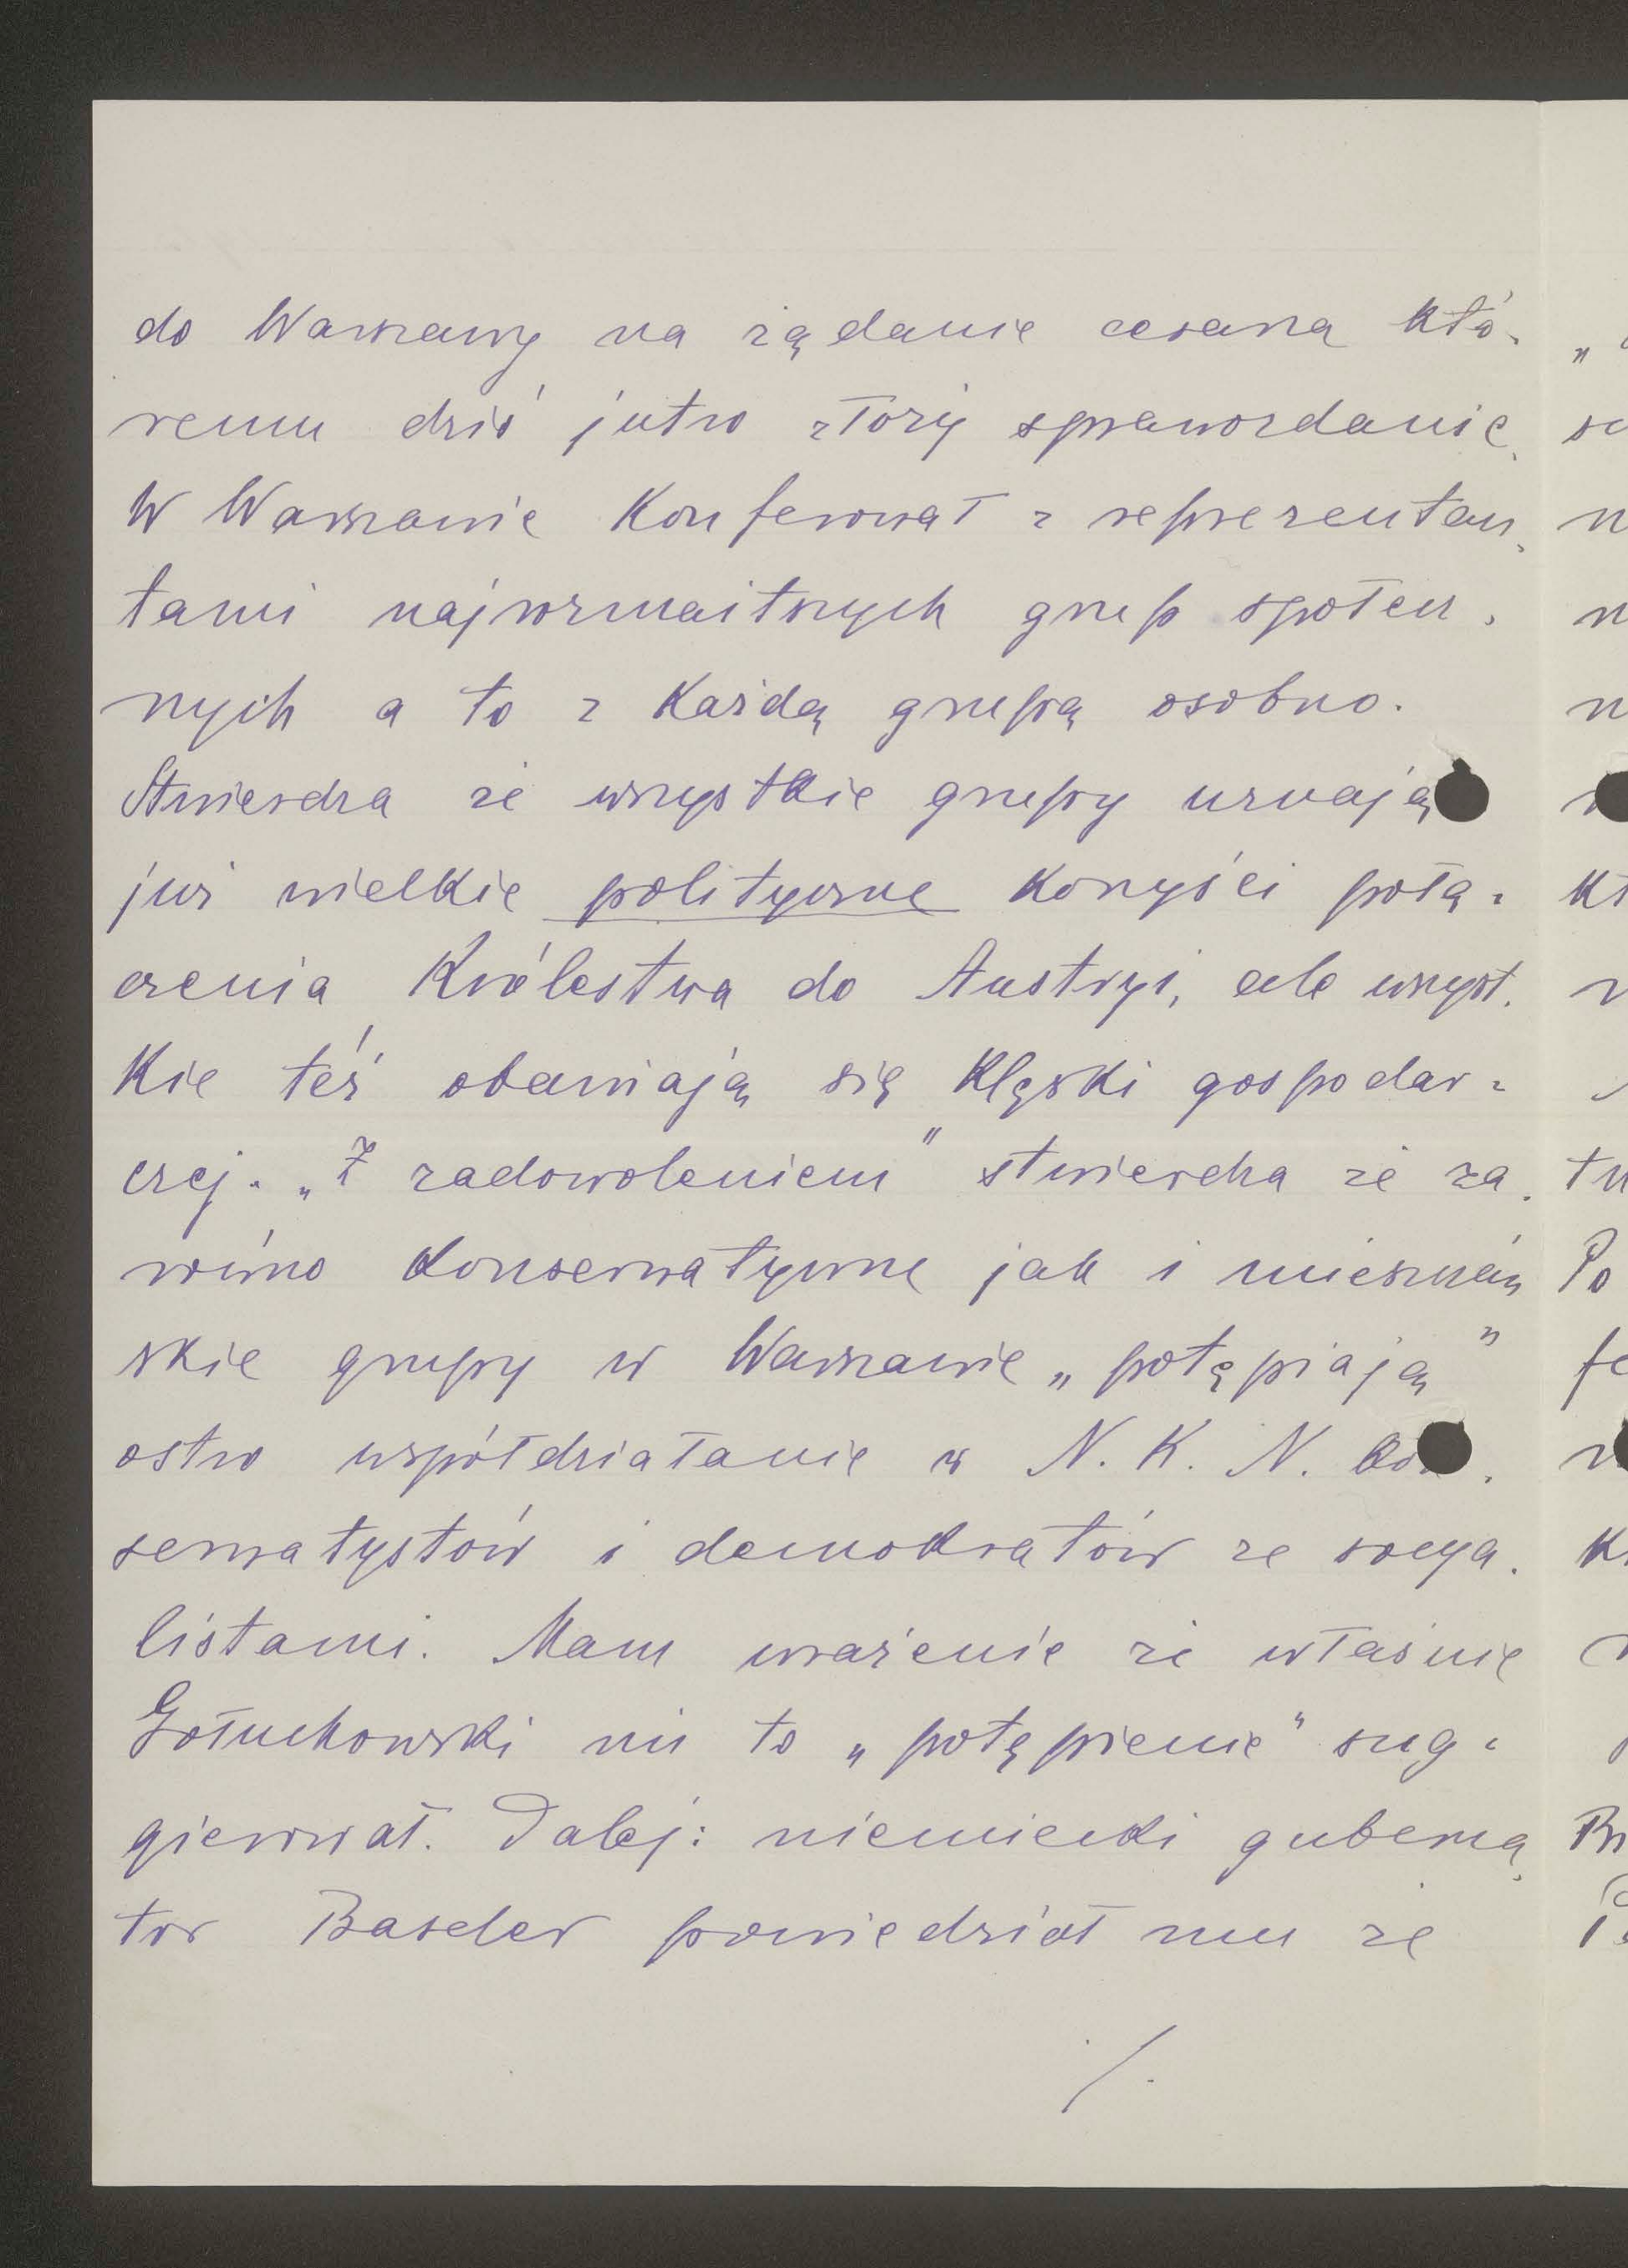 do Warszawy na żądanie cesarza któ-
remu dziś jutro złoży sprawozdanie.
W Warszawie konferował z reprezentan-
tami najrozmaitszych grup społecz-
nych a to z każdą grupą osobno.
Stwierdza że wszystkie grupy uznają
już wielkie polityczne korzyści połą-
czenia Królestwa do Austryi, ale wszyst-
kie też obawiają się klęski gospodar-
czej. „Z zadowoleniem" stwierdza że za-
równo konserwatywne jak i mieszczań-
skie grupy w Warszawie „potępiają"
ostro współdziałanie w N. K. N. kon-
serwatystów i demokratów ze socya-
listami. Mam wrażenie że właśnie
Gołuchowski im to „potępienie" sug-
gierował. Dalej: niemiecki guberna-
tor Baseler powiedział mu że
/.